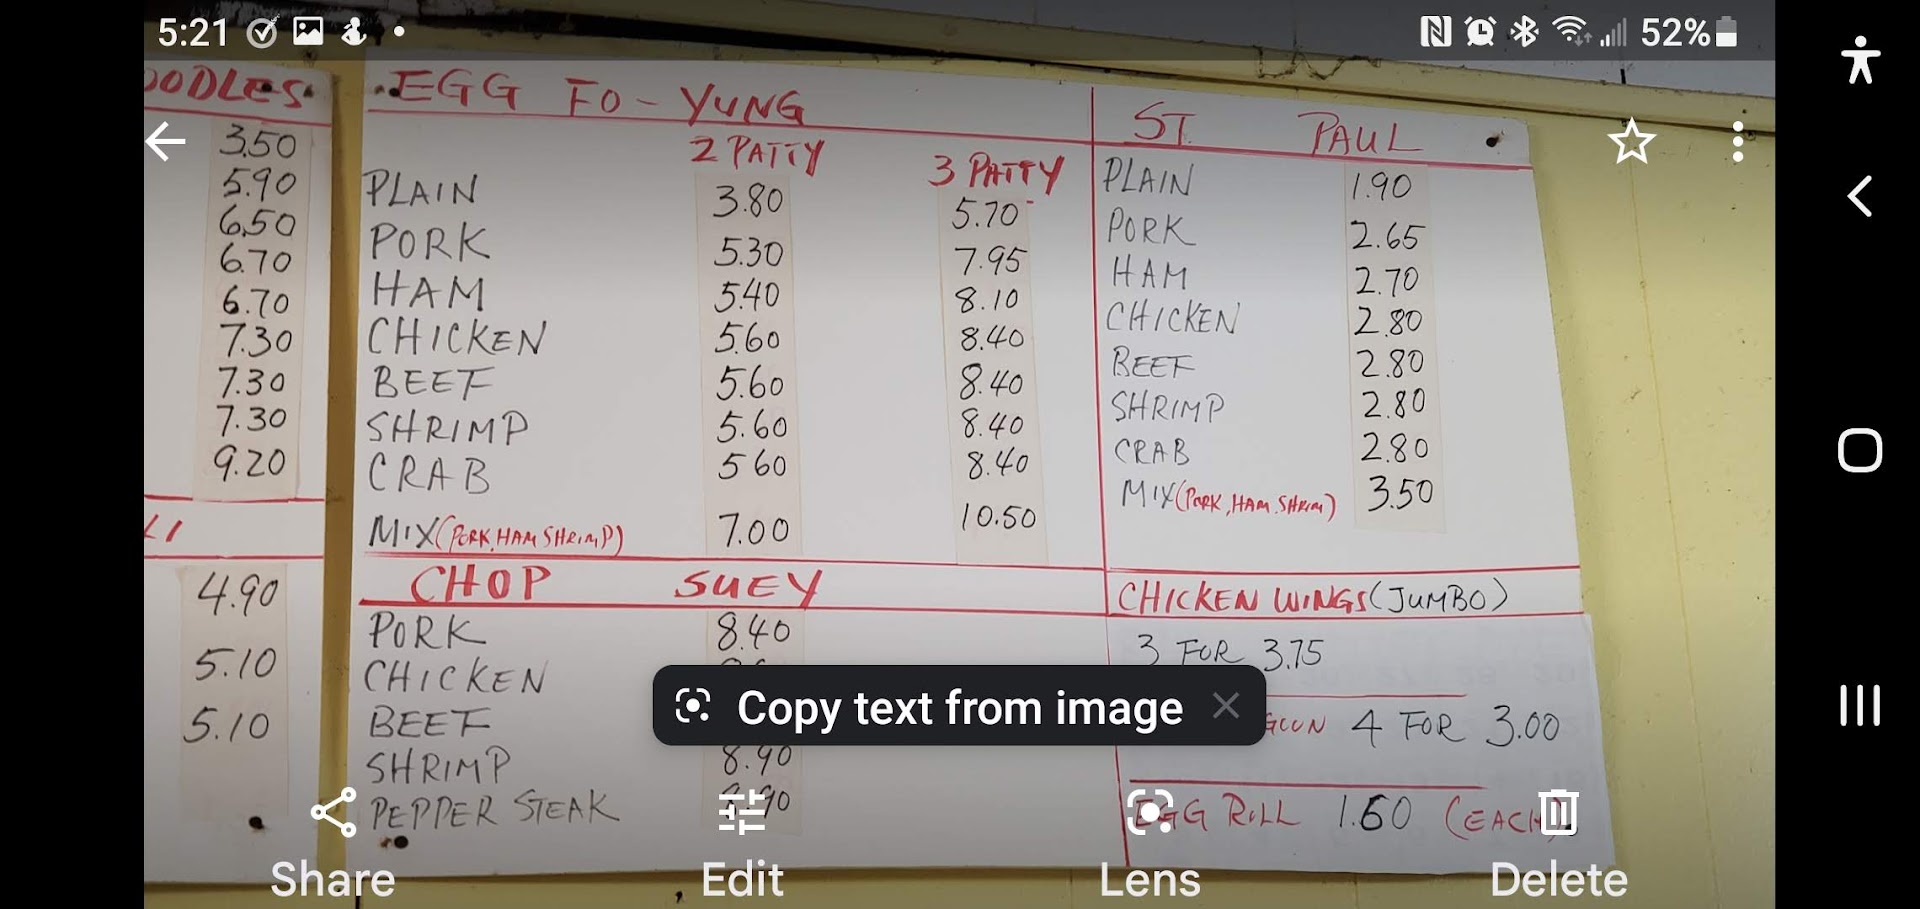 5:21
52%
OODLES
3.50
5.90
6.50
6.70
6.70
7.30
7.30
7.30
9.20
LI
4.90
5.10
5.10
EGG FO-YUNG
2 PATTY 3 PATTY
PLAIN 3.80 5.70
PORK 5.30 7.95
HAM 5.40 8.10
CHICKEN 5.60 8.40
BEEF 5.60 8.40
SHRIMP 5.60 8.40
CRAB 5 60 8.40
MIX (PORK, HAM SHRIMP) 7.00 10.50
CHOP SUEY
PORK 8.40
CHICKEN
BEEF
SHRIMP 8.90
PEPPER STEAK
ST. PAUL
PLAIN 1.90
PORK 2.65
HAM 2.70
CHICKEN 2.80
BEEF 2.80
SHRIMP 2.80
CRAB 2.80
MIX (PORK, HAM. SHRIM) 3.50
CHICKEN WINGS (JUMBO)
3 FOR 3.75
GOON 4 FOR 3.00
EGG ROLL 1.60 (EACH)
Copy text from image
Share Edit Lens Delete